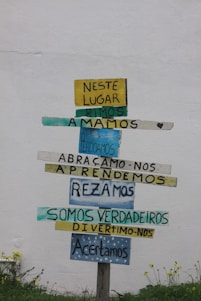 NESTE
LUGAR
RIMOS
AMAMOS
ABRAÇAMO-NOS
APRENDEMOS
REZAMOS
SOMOS VERDADEIROS
DIVERTIMO-NOS
Aceitamos